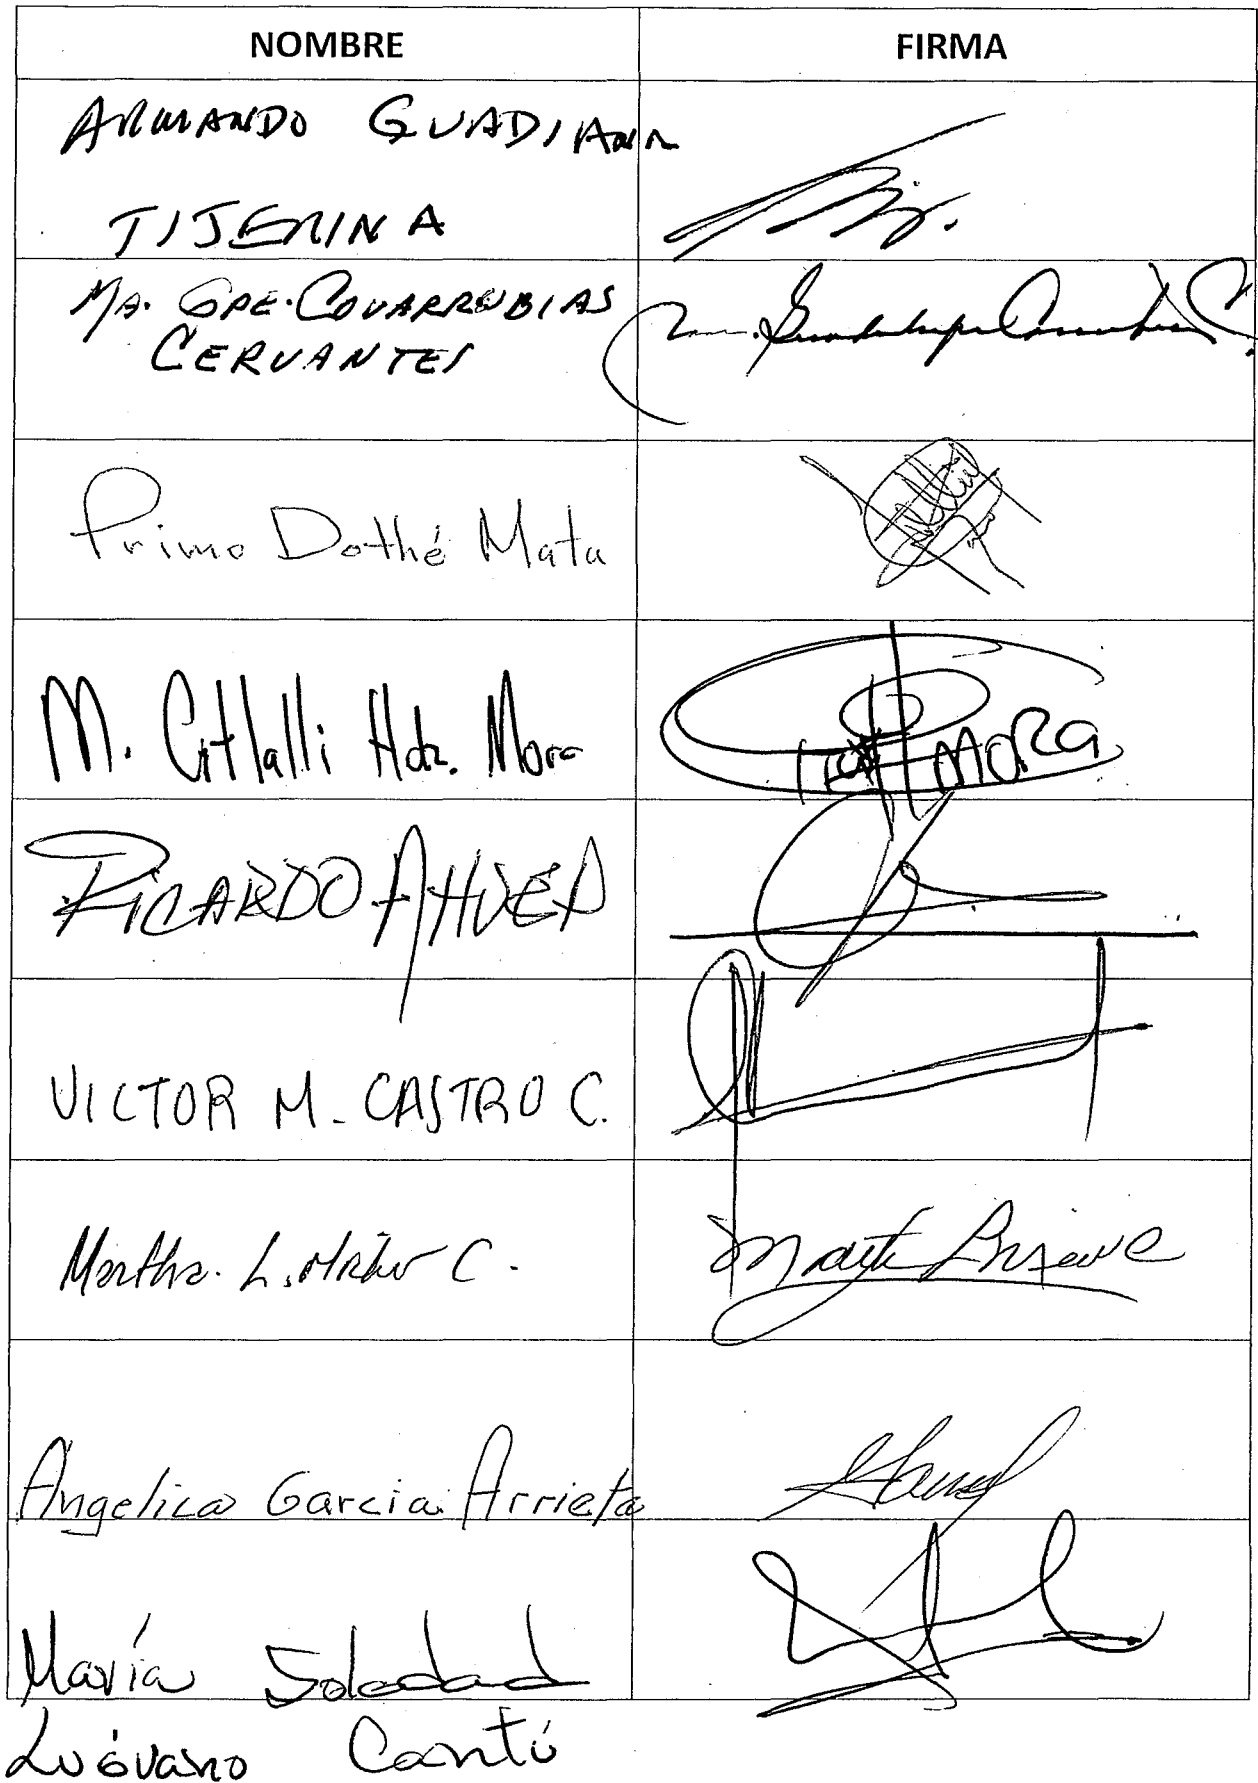 NOMBRE FIRMA
ARMANDO GUADIANA
TIJERINA
MA. GPE. COVARRUBIAS
CERVANTES
Primo Dothé Mata
M. Citlalli Hdz. Mora
MORA
RICARDO AHUED
VICTOR M. CASTRO C.
Martha. L. C.
Angelica Garcia Arrieta
María Soledad
Luévano Cantú